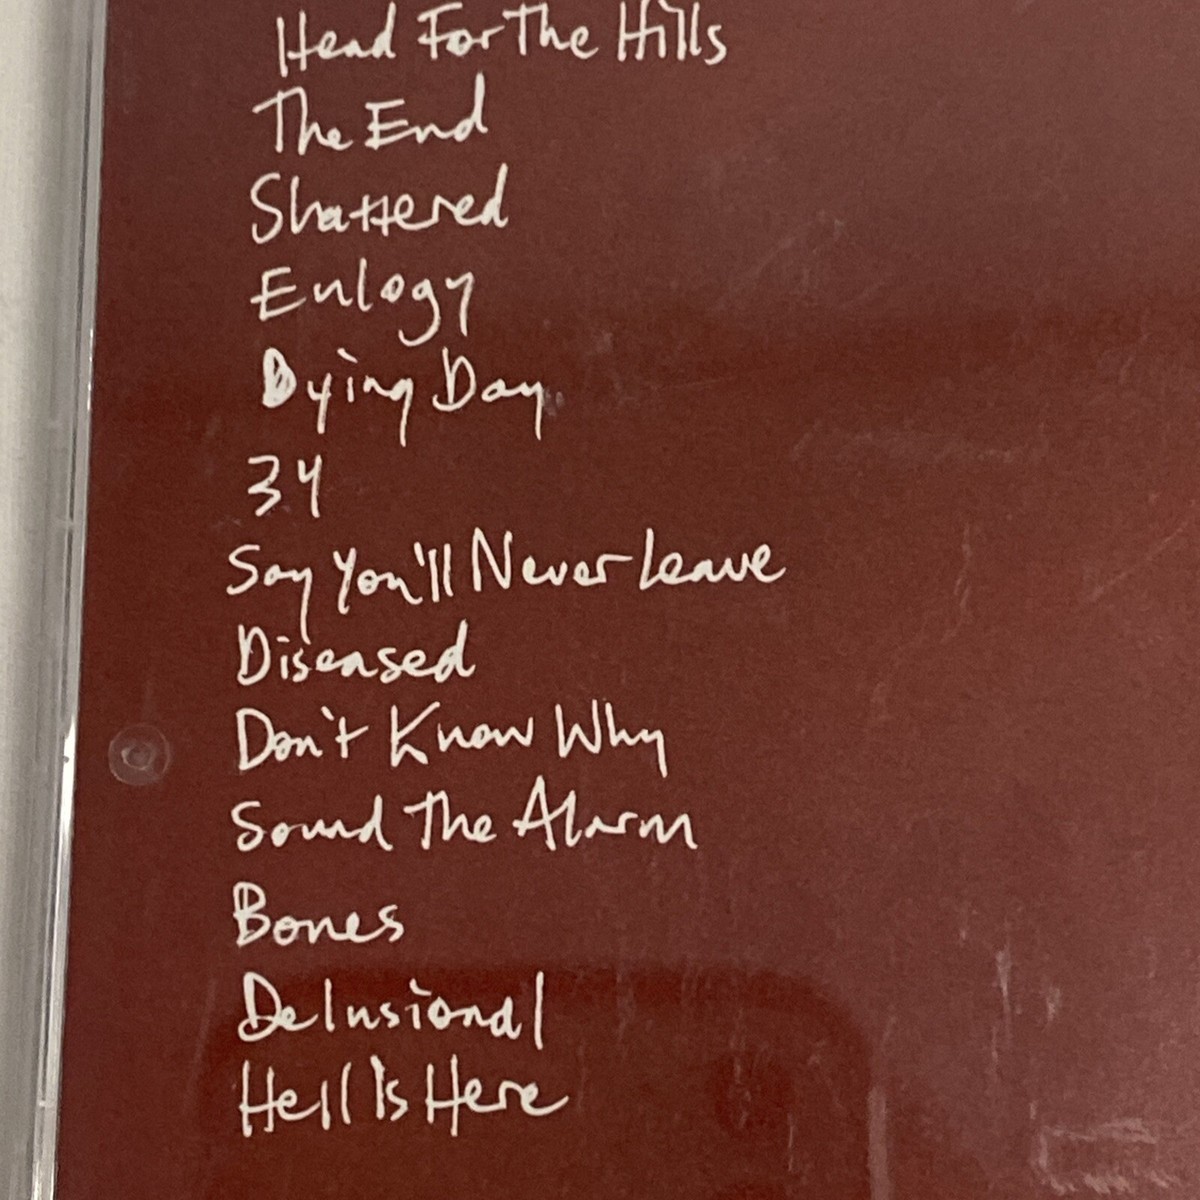 Head For The Hills
The End
Shattered
Eulogy
Dying Day
34
Say You'll Never Leave
Diseased
Don't Know Why
Sound The Alarm
Bones
Delusional
Hell Is Here